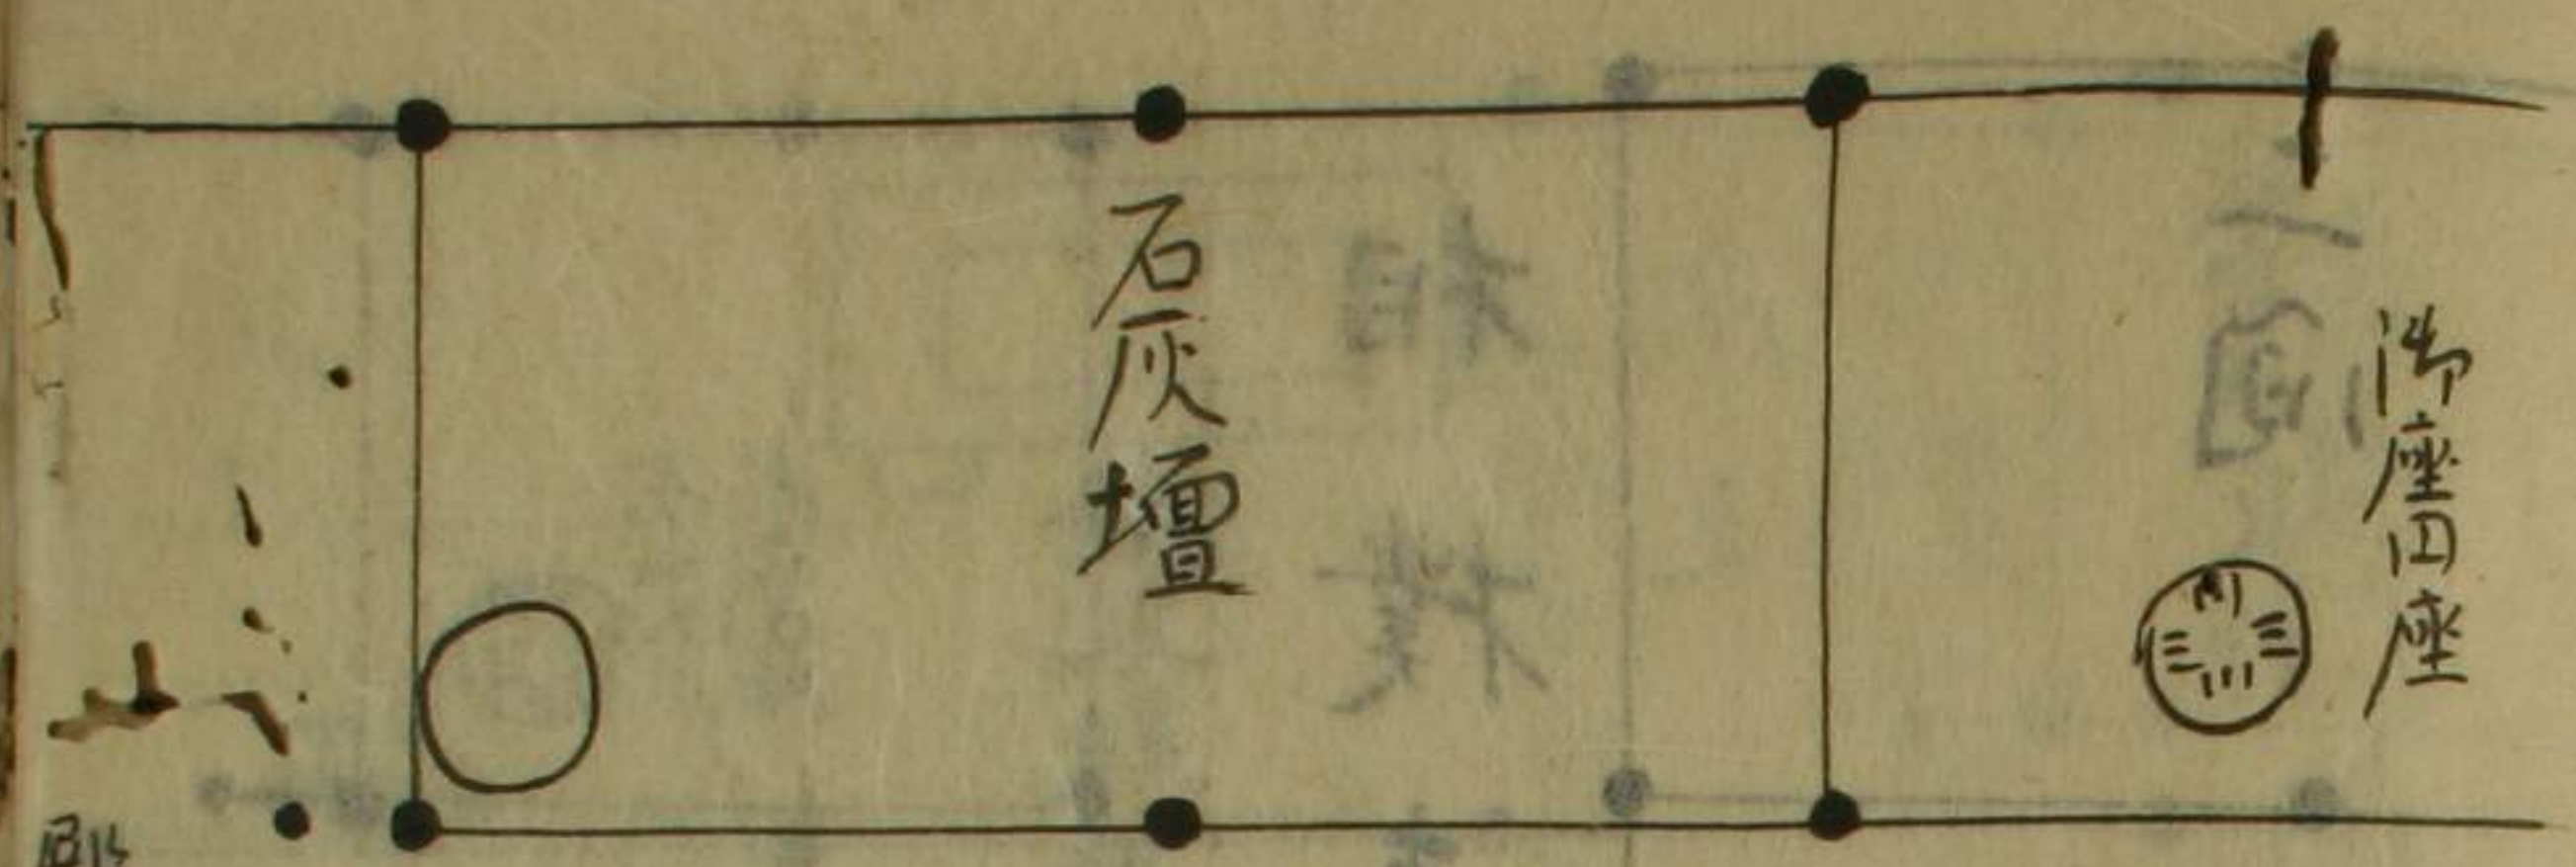 御座円座
石灰壇